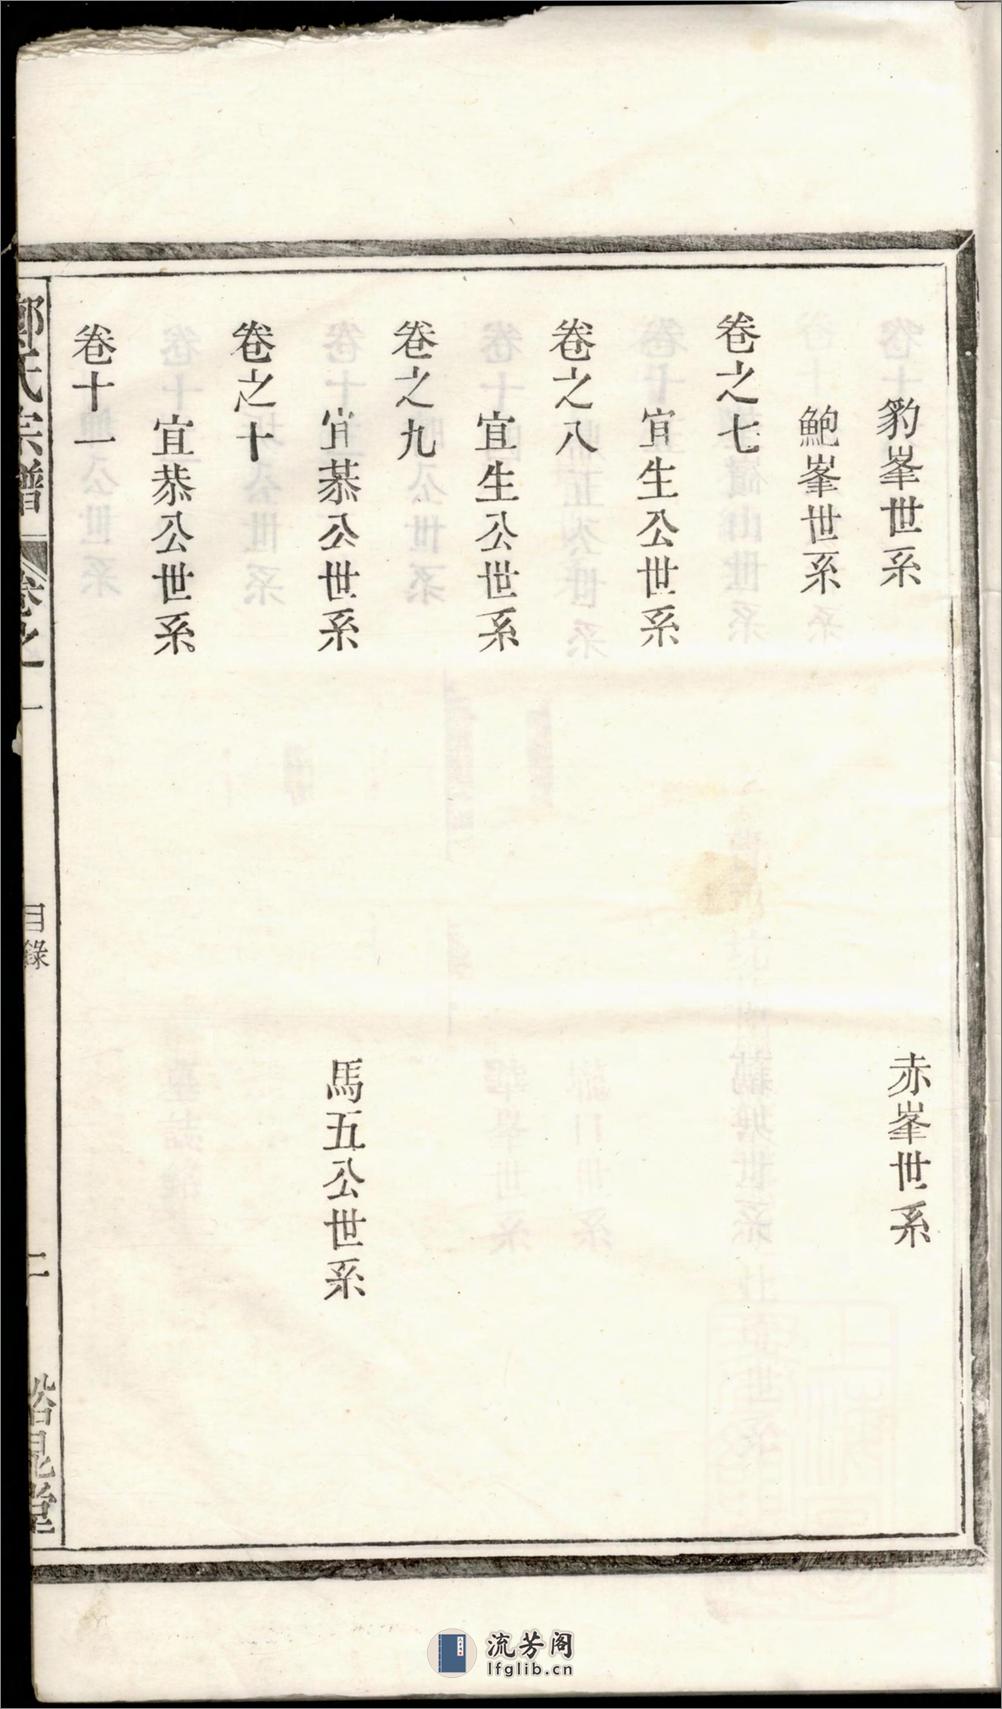 豹峯世系
赤峯世系
鮑峯世系
卷之七
宜生公世系
卷之八
宜生公世系
卷之九
宜恭公世系
馬五公世系
卷之十
宜恭公世系
卷十一
鄭氏宗譜
卷之一
目錄
二
裕昆堂
流芳阁
lfglib.cn